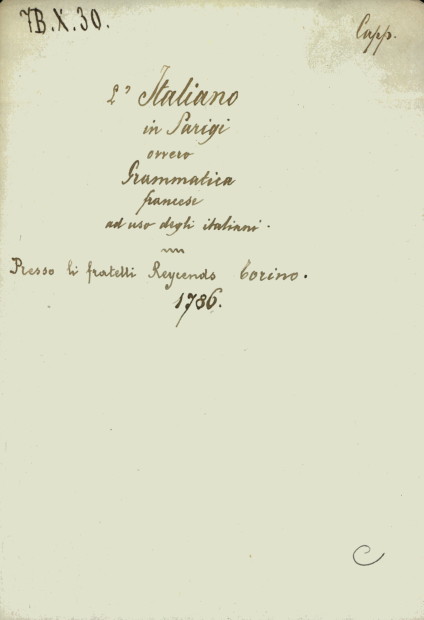 7B.X.30.
Capp.
L' Italiano
in Parigi
ovvero
Grammatica
francese
ad uso degli italiani.
Presso li fratelli Reycends Torino.
1786.
C